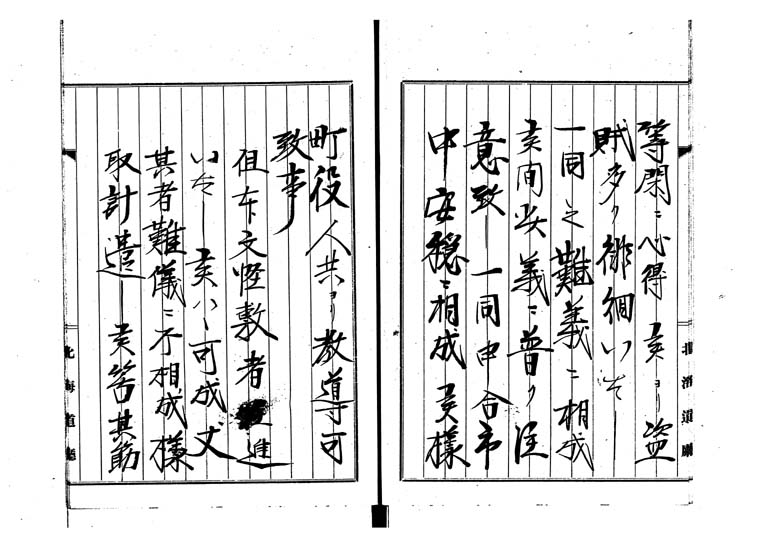 等閑ニ心得候ヨリ盗
賊多ク徘徊いたし
一同之難義ニ相成
候間此義ニ普ク注
意致シ一同申合市
中安穏ニ相成候様
町役人共ヨリ教導可
致事
但本文怪敷者 進
いたし候ハヽ可成丈
其者難儀ニ不相成様
取計遣シ候筈其節
北海道廳
北海道廳